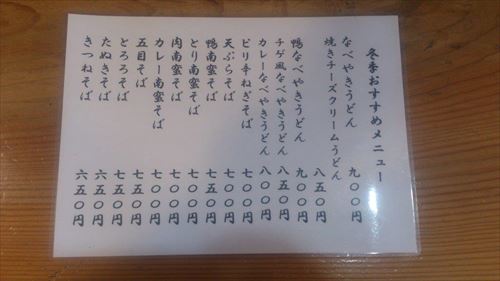 冬季おすすめメニュー
なべやきうどん 九〇〇円
焼きチーズクリームうどん 八五〇円
鴨なべやきうどん 九〇〇円
チゲ風なべやきうどん 八五〇円
カレーなべやきうどん 八〇〇円
ピリ辛ねぎそば 七〇〇円
天ぷらそば 七〇〇円
鴨南蛮そば 七五〇円
とり南蛮そば 七〇〇円
肉南蛮そば 七〇〇円
カレー南蛮そば 七〇〇円
五目そば 七五〇円
とろろそば 七五〇円
たぬきそば 六五〇円
きつねそば 六五〇円